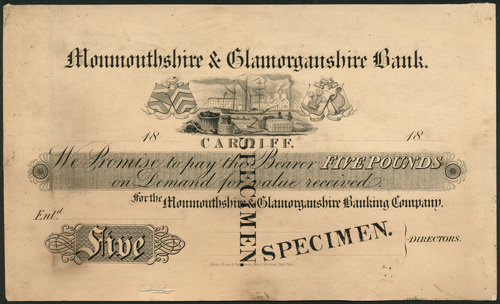 Monmouthshire & Glamorganshire Bank.
18 18
CARDIFF.
We Promise to pay the Bearer FIVE POUNDS
on Demand for value received.
For the Monmouthshire & Glamorganshire Banking Company.
Entd.
Five
SPECIMEN.
SPECIMEN.
DIRECTORS.